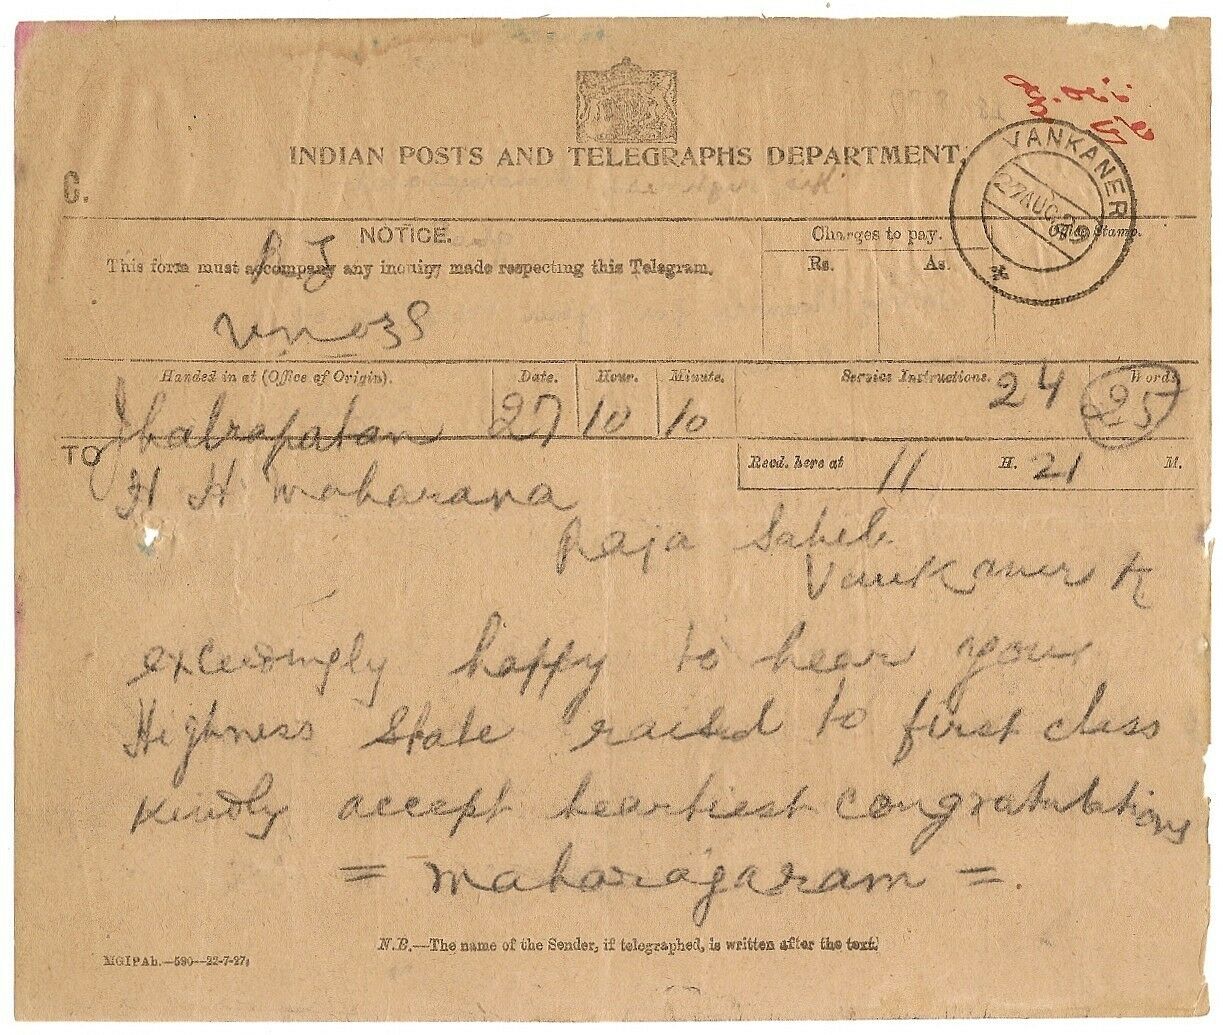 INDIAN POSTS AND TELEGRAPHS DEPARTMENT.
C.
VANKANER
27 AUG. 29
NOTICE.
This form must accompany any inquiry made respecting this Telegram.
Charges to pay.
Rs. As.
Office Stamp.
Handed in at (Office of Origin). Date. Hour. Minute. Service Instructions. Words
Jhalrapatan 27 10 10 24 25
TO
Recd. here at 11 H. 21 M.
H H Maharana
Raja Saheb
Vankaner
exceedingly happy to hear your
Highness State raised to first class
Kindly accept heartiest congratulations
= Maharajaram =.
N.B.—The name of the Sender, if telegraphed, is written after the text.
MGIPAh.—590—22-7-27.